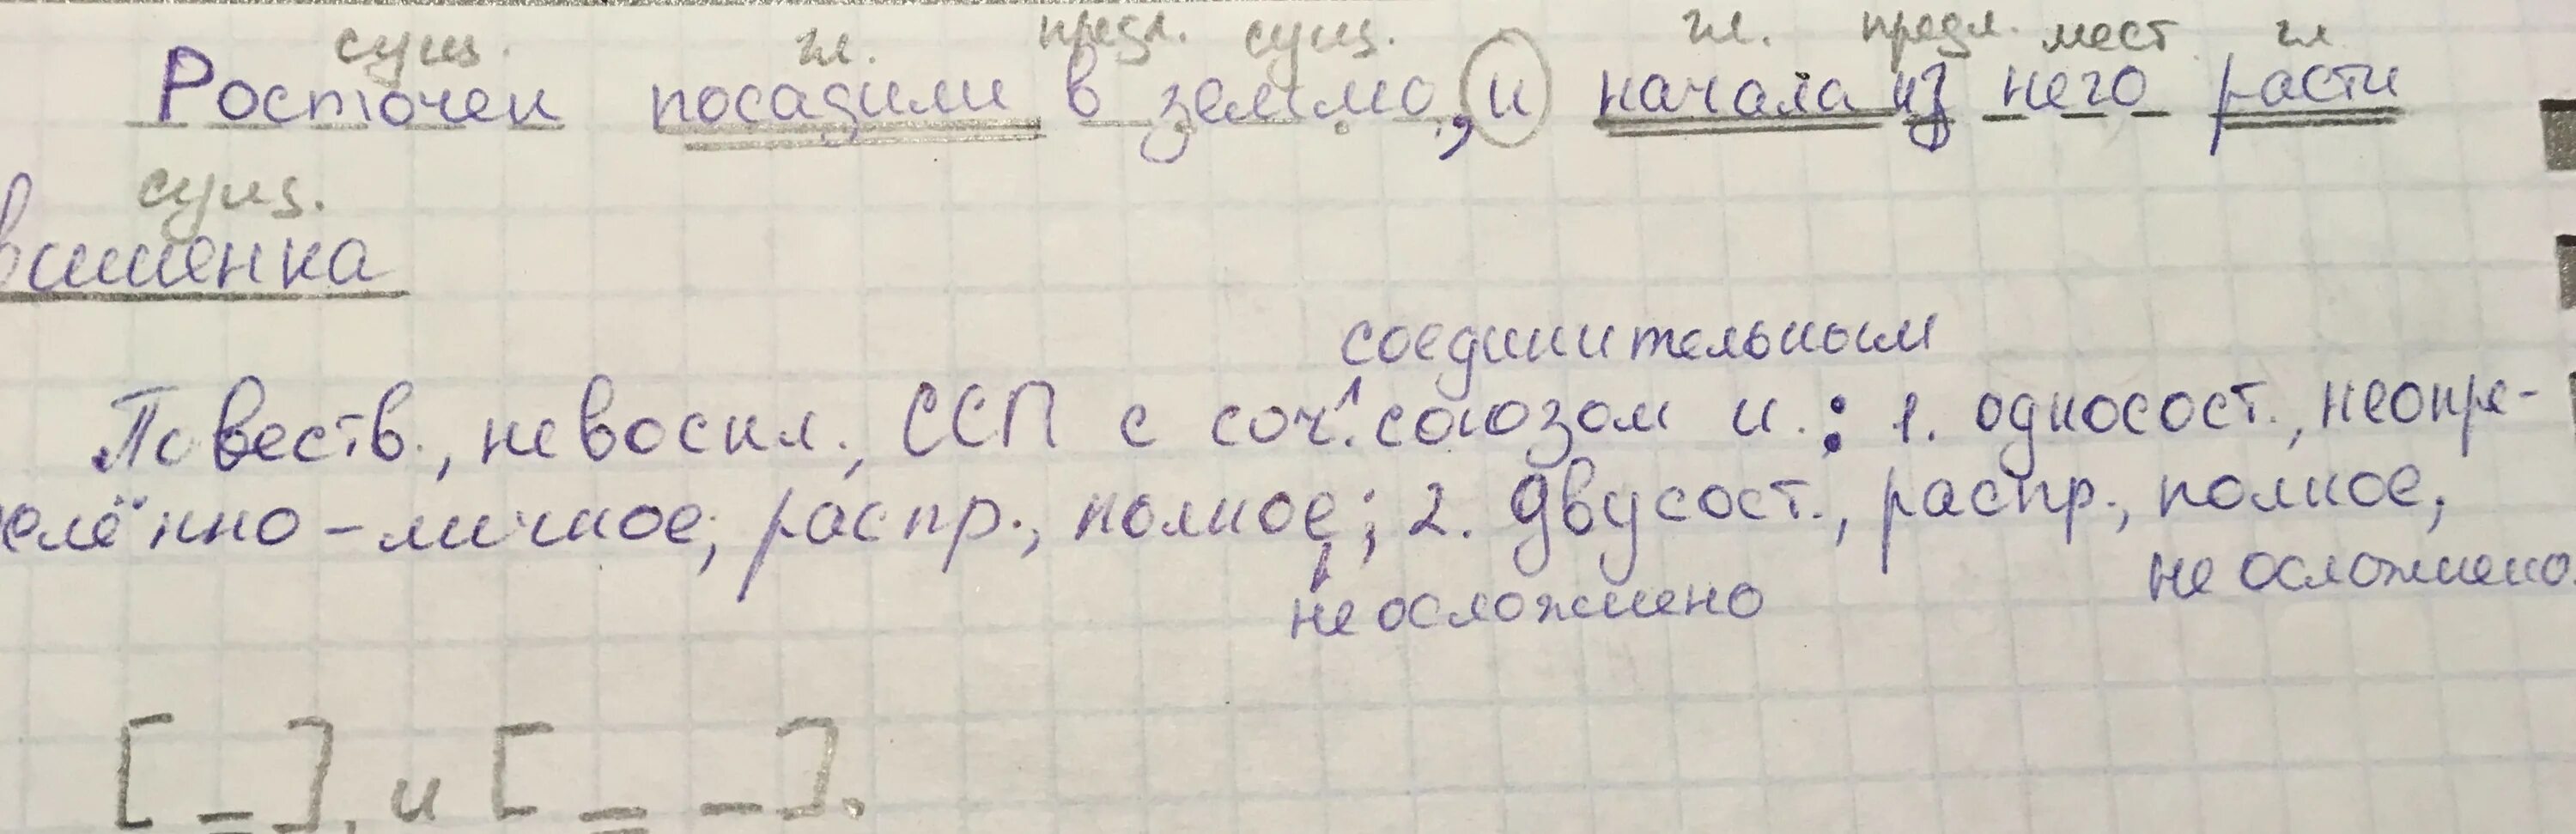 сущ. гл. предл. сущ. гл. предл. мест гл
Росточек посадили в землю, и начала из него расти
сущ.
вишенка
соединительным
Повеств., невоскл., ССП с соч. союзом и.: 1. односост., неопре-
елённо-личное, распр., полное; 2. двусост., распр., полное,
не осложнено не осложнено.
[ = ], и [ = – ].